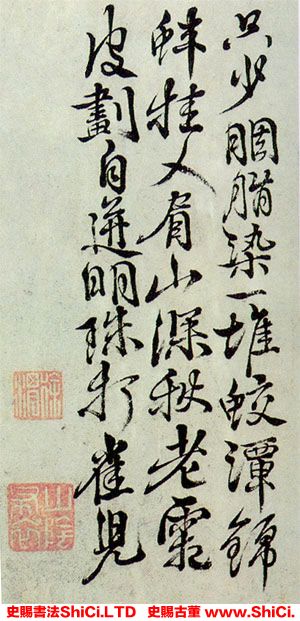 只少胭脂染一堆蛟潭錦
蚌挂人眉山深秋老霜
皮劃自迸明珠打雀兒
徐渭
史賜書法ShiCi.LTD 史賜古董 www.ShiCi.